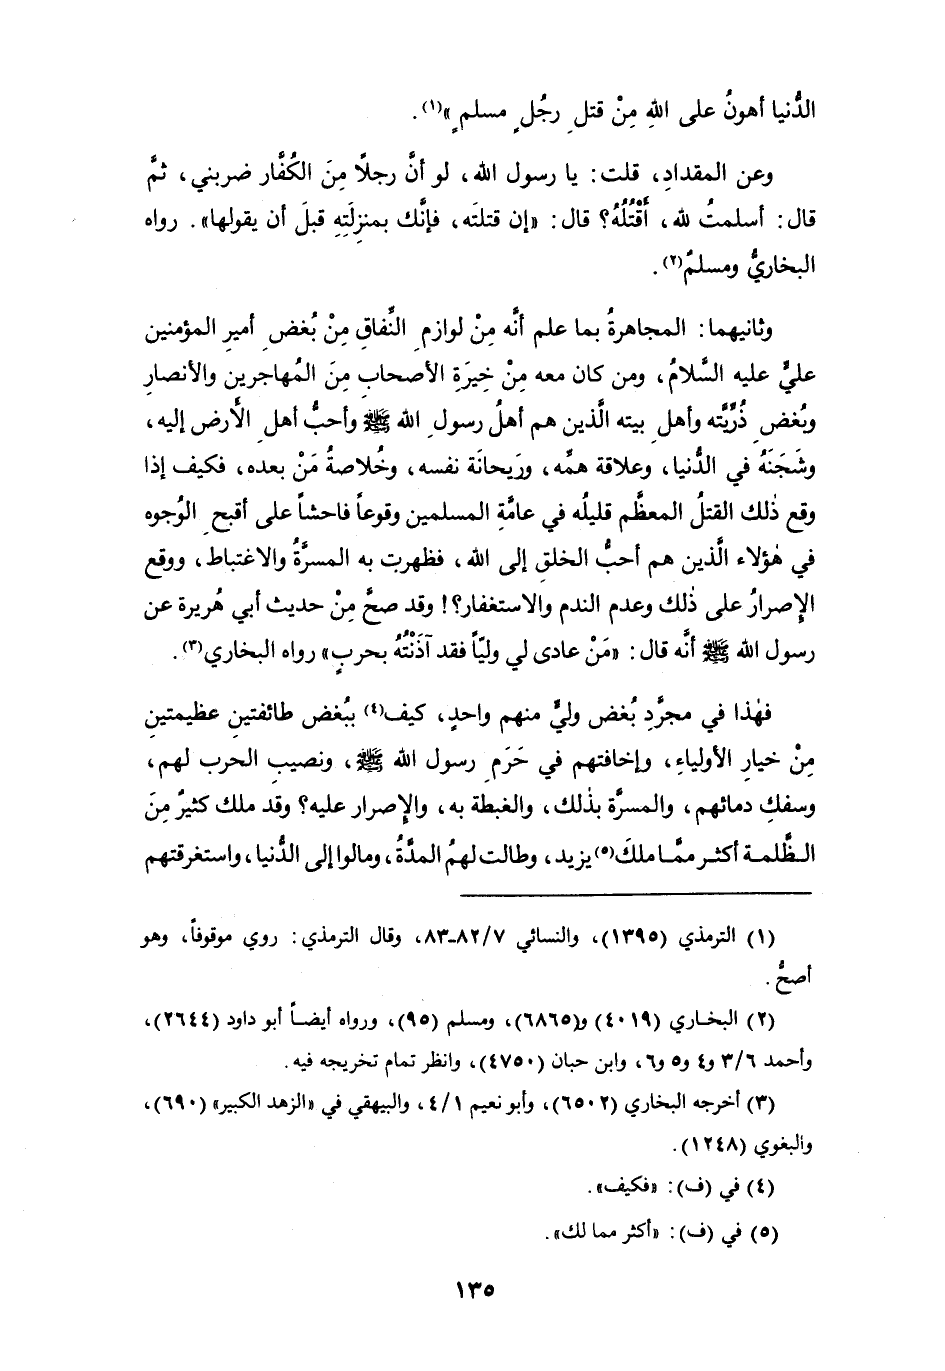 الدُّنيا أهونُ على اللهِ مِنْ قتلِ رجُلٍ مسلمٍ»(١).
وعن المقدادِ، قلت: يا رسول الله، لو أنَّ رجلاً مِنَ الكُفَّار ضربني، ثمَّ
قال: أسلمتُ لله، أَقْتُلُهُ؟ قال: «إن قتلتَه، فإنَّك بمنزلَتِهِ قبلَ أن يقولها». رواه
البخاريُّ ومسلمٌ(٢).
وثانيهما: المجاهرةُ بما علم أنَّه مِنْ لوازمِ النِّفاقِ مِنْ بُغضِ أميرِ المؤمنين
عليٍّ عليه السَّلامُ، ومن كان معه مِنْ خِيَرَةِ الأصحابِ مِنَ المُهاجرين والأنصارِ
وبُغضِ ذُرِّيَّته وأهلِ بيته الَّذين هم أهلُ رسولِ الله ﷺ وأحبُّ أهلِ الأرض إليه،
وشَجَنَهُ في الدُّنيا، وعلاقة همِّه، ورَيحانَة نفسه، وخُلاصةُ مَنْ بعده، فكيف إذا
وقع ذٰلك القتلُ المعظَّم قليلُه في عامَّةِ المسلمين وقوعاً فاحشاً على أقبحِ الوُجوه
في هٰؤلاء الَّذين هم أحبُّ الخلقِ إلى الله، فظهرت به المسرَّةُ والاغتباط، ووقع
الإصرارُ على ذٰلك وعدم الندم والاستغفار؟! وقد صحَّ مِنْ حديث أبي هُريرة عن
رسول الله ﷺ أنَّه قال: «مَنْ عادى لي وليّاً فقد آذَنْتُهُ بحربٍ» رواه البخاري(٣).
فهٰذا في مجرَّدِ بُغض وليٍّ منهم واحدٍ، كيف(٤) ببُغض طائفتينِ عظيمتينِ
مِنْ خيارِ الأولياءِ، وإخافتهم في حَرَمِ رسول الله ﷺ، ونصيبِ الحرب لهم،
وسفكِ دمائهم، والمسرَّة بذٰلك، والغبطة به، والإصرار عليه؟ وقد ملك كثيرٌ مِنَ
الظَّلمة أكثر ممَّا ملكَ(٥) يزيد، وطالت لهمُ المدَّةُ، ومالوا إلى الدُّنيا، واستغرقتهم
(١) الترمذي (١٣٩٥)، والنسائي ٨٢/٧-٨٣، وقال الترمذي: روي موقوفاً، وهو
أصحُّ.
(٢) البخاري (٤٠١٩) و(٦٨٦٥)، ومسلم (٩٥)، ورواه أيضاً أبو داود (٢٦٤٤)،
وأحمد ٣/٦ و٤ و٥ و٦، وابن حبان (٤٧٥٠)، وانظر تمام تخريجه فيه.
(٣) أخرجه البخاري (٦٥٠٢)، وأبو نعيم ٤/١، والبيهقي في «الزهد الكبير» (٦٩٠)،
والبغوي (١٢٤٨).
(٤) في (ف): «فكيف».
(٥) في (ف): «أكثر مما لك».
١٣٥